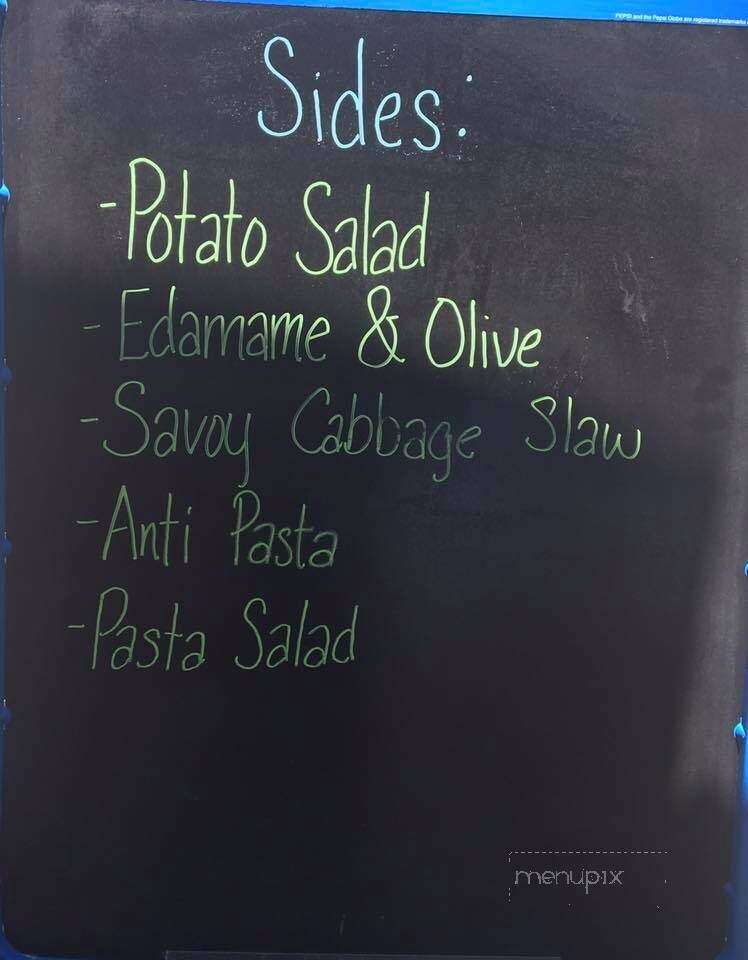 PEPSI and the Pepsi Globe are registered trademarks
Sides:
-Potato Salad
-Edamame & Olive
-Savoy Cabbage Slaw
-Anti Pasta
-Pasta Salad
menupix